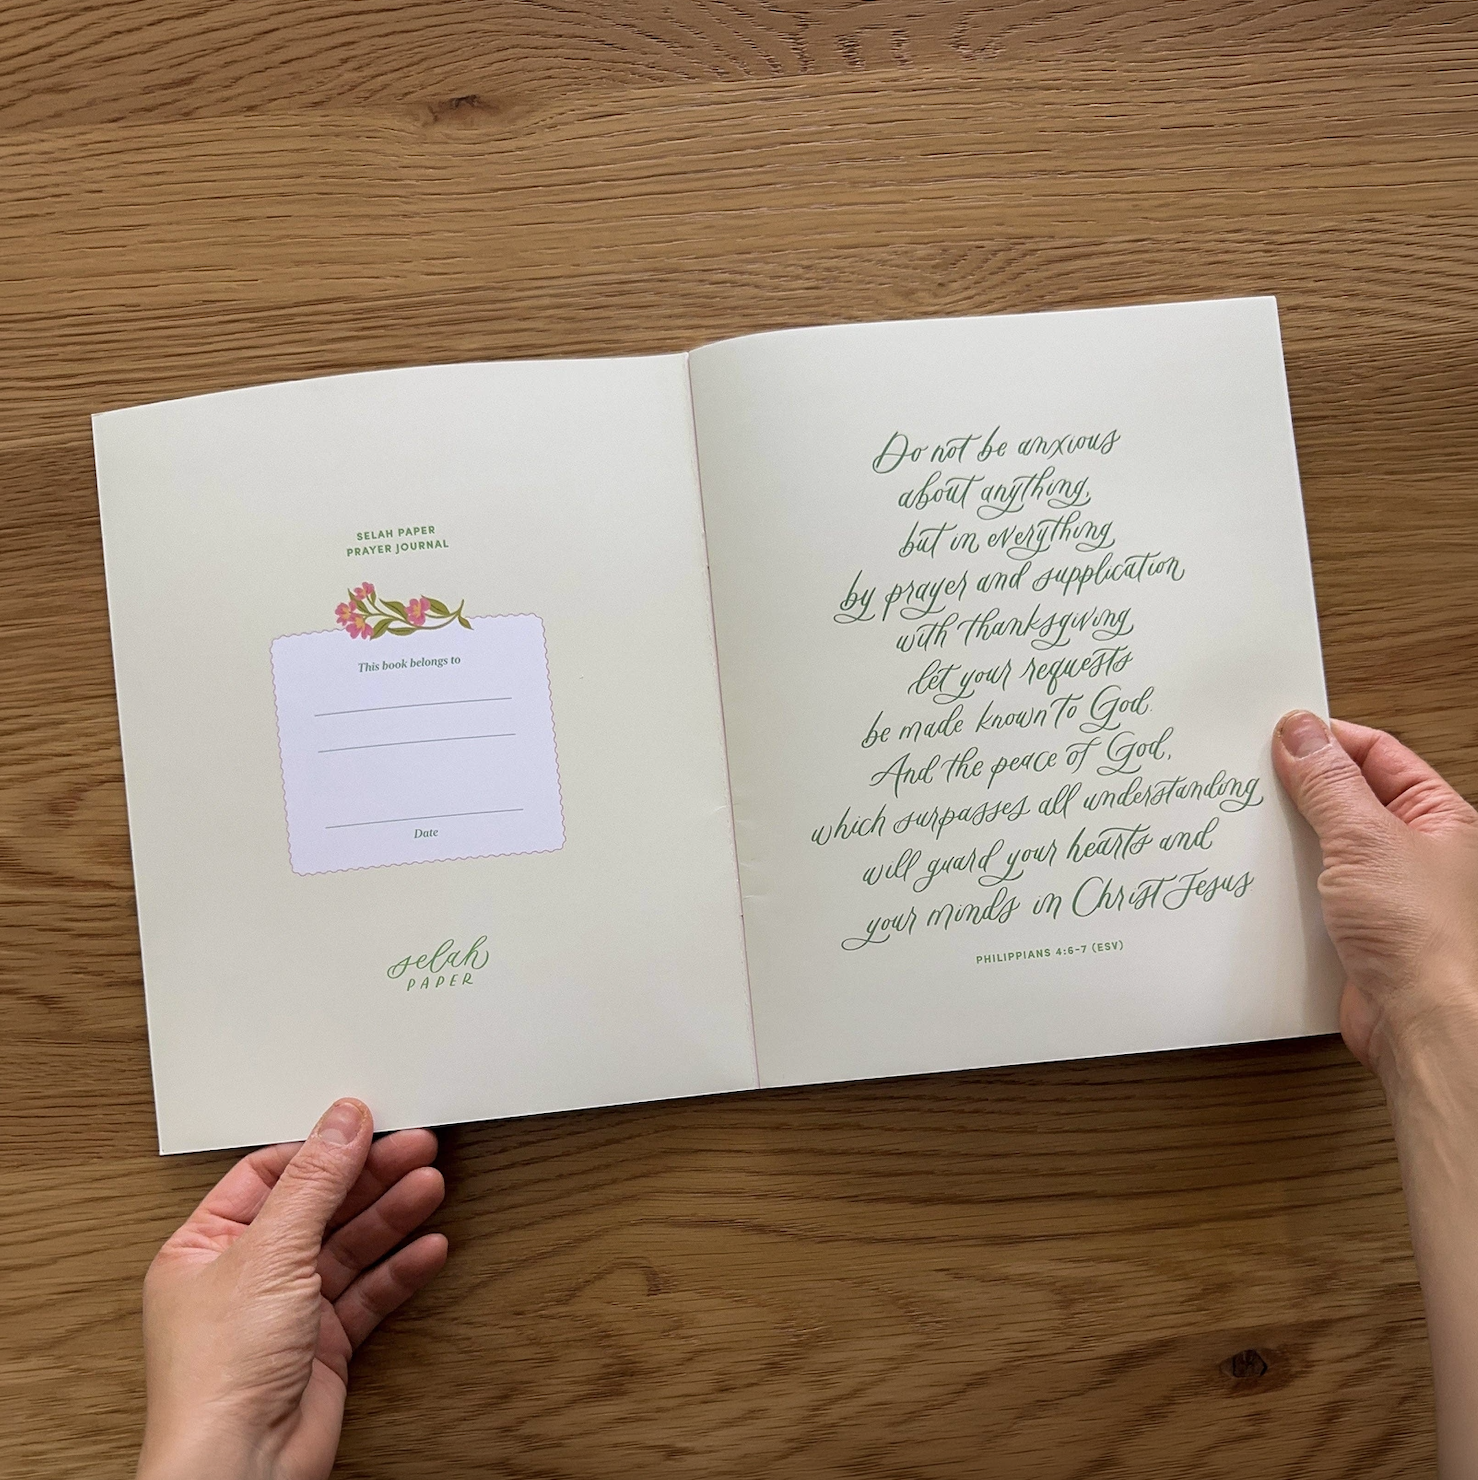 SELAH PAPER
PRAYER JOURNAL
This book belongs to
Date
selah
PAPER
Do not be anxious
about anything,
but in everything
by prayer and supplication
with thanksgiving
let your requests
be made known to God.
And the peace of God,
which surpasses all understanding
will guard your hearts and
your minds in Christ Jesus
PHILIPPIANS 4:6-7 (ESV)